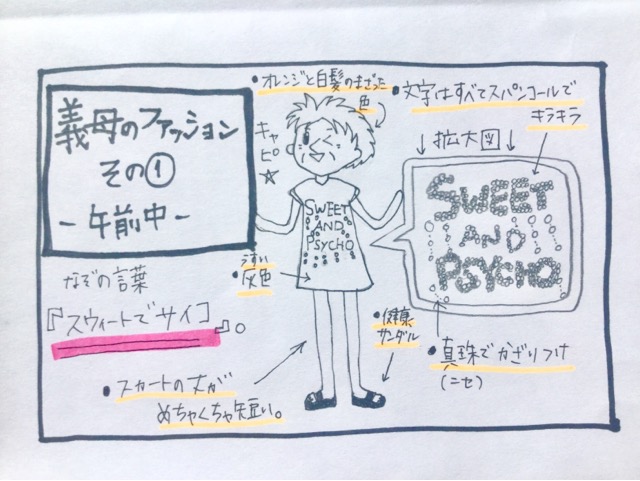 義母のファッション
その①
-午前中-
・オレンジと白髪のまざった
色
・文字はすべてスパンコールで
キラキラ
↓拡大図↓
キャピ☆
SWEET
AND
PSYCHO
SWEET
AND
PSYCHO
・うすい
灰色
なぞの言葉
『スウィートでサイコ』。
・健康
サンダル
・真珠でかざりつけ
(ニセ)
・スカートの丈が
めちゃくちゃ短い。